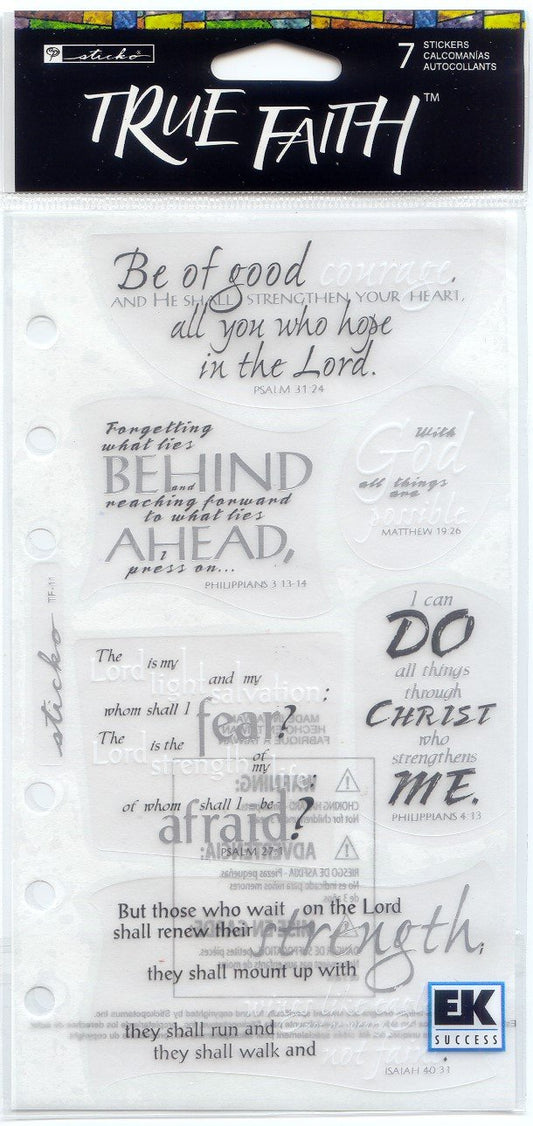 sticko
7 STICKERS
CALCOMANÍAS
AUTOCOLLANTS
TRUE FAITH™
Be of good courage.
AND HE SHALL STRENGTHEN YOUR HEART,
all you who hope
in the Lord.
PSALM 31:24
Forgetting
what lies
BEHIND
and
reaching forward
to what lies
AHEAD,
I
press on...
PHILIPPIANS 3:13-14
With
God
all things
are
possible
MATTHEW 19:26
I can
DO
all things
through
CHRIST
who
strengthens
ME.
PHILIPPIANS 4:13
sticko TF-11
The Lord is my light and my salvation;
whom shall I fear?
The Lord is the strength of my life;
of whom shall I be afraid?
PSALM 27:1
MADE IN TAIWAN
HECHO EN TAIWAN
FABRIQUE TAIWAN
WARNING:
CHOKING HAZARD
Not for children
ADVERTENCIA:
RIESGO DE ASFIXIA - Piezas pequeñas
MISE EN GARDE
But those who wait on the Lord
shall renew their strength,
they shall mount up with
wings like eagles
they shall run and
they shall walk and
not faint.
ISAIAH 40:31
EK
SUCCESS